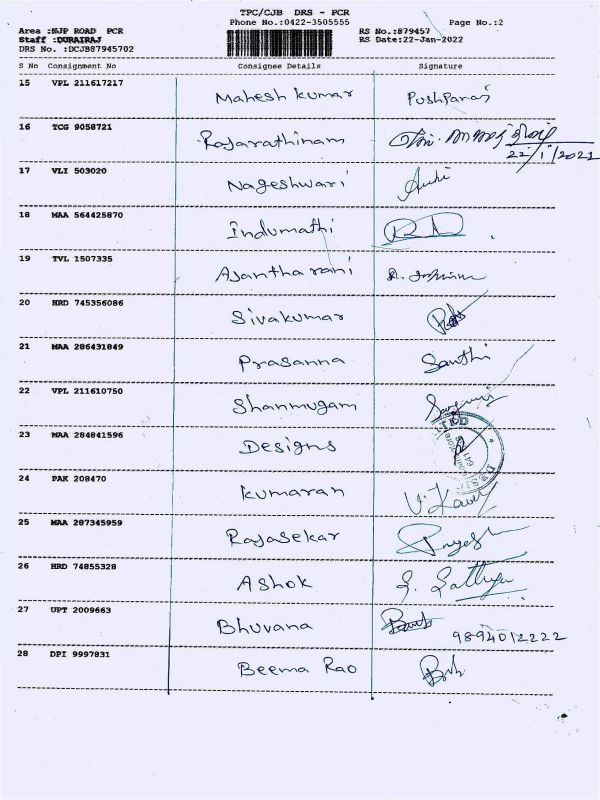 TPC/CJB DRS - PCR
Phone No.:0422-3505555 Page No.:2
Area :NJP ROAD PCR RS No.:879457
Staff :DURAIRAJ RS Date:22-Jan-2022
DRS No. :DCJB87945702
S No Consignment No Consignee Details Signature
15 VPL 211617217 Mahesh kumar Pushparaj
16 TCG 9058721 Rajarathinam
22/1/2021
17 VLI 503020 Nageshwari
18 MAA 564425870 Indumathi
19 TVL 1507335 Ajantha rani
20 HRD 745356086 Sivakumar
21 MAA 286431849 Prasanna Santhi
22 VPL 211610750 Shanmugam
23 MAA 284841596 Designs
24 PAK 208470 Kumaran
25 MAA 287345959 Rajasekar
26 HRD 74855328 Ashok
27 UPT 2009663 Bhuvana 9894012222
28 DPI 9997831 Beema Rao